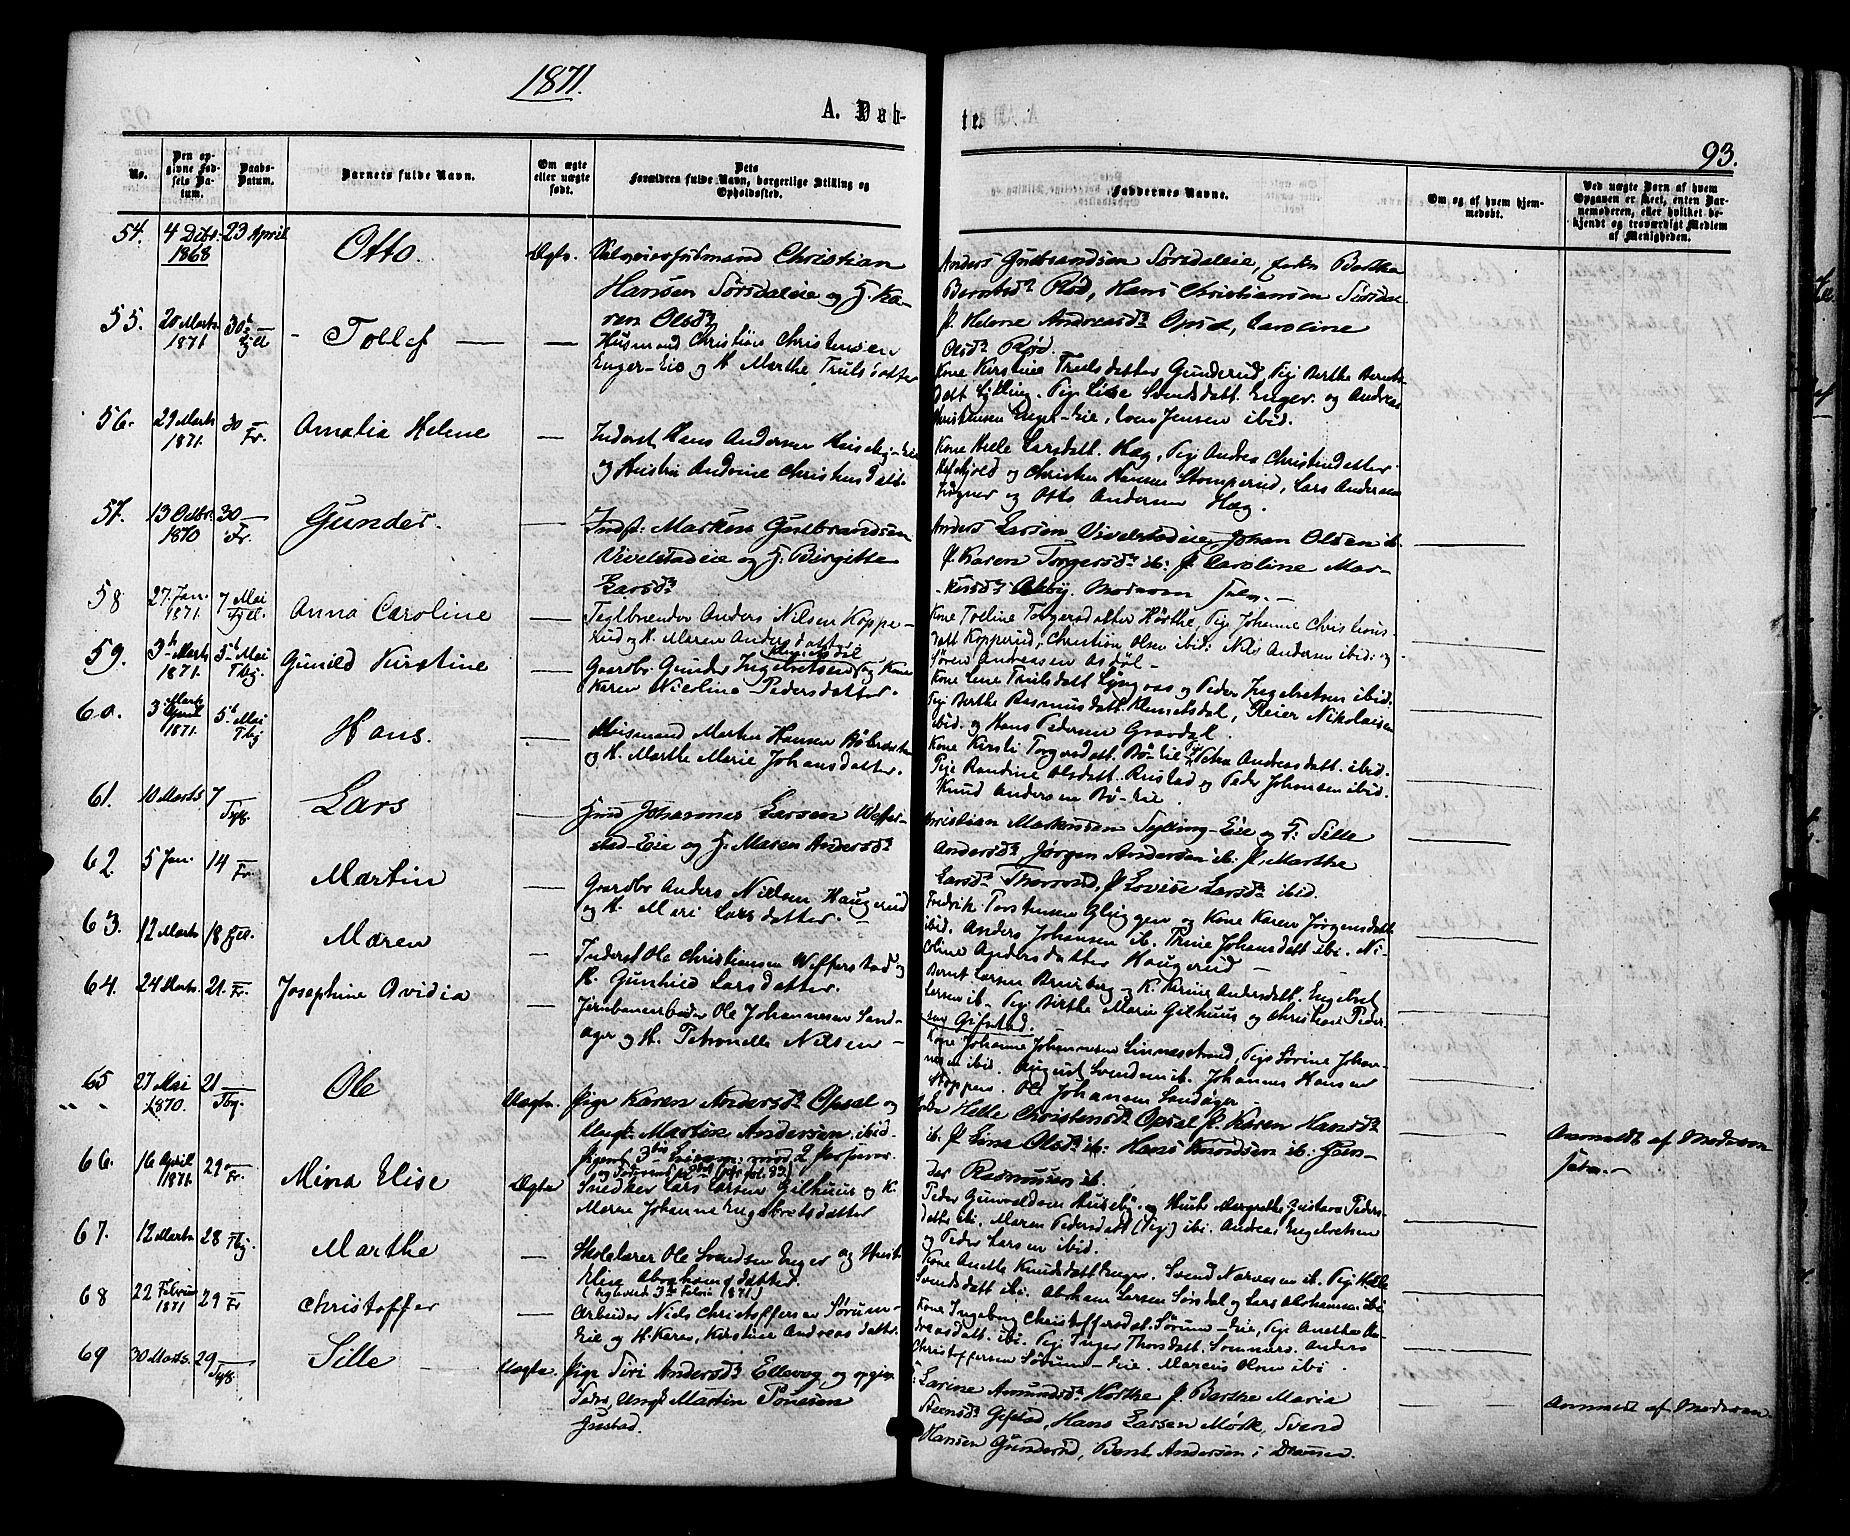 1871.
A. Døb-
te.
93.
No.
Den op-
givne Fød-
sels Da-
tum.
Daabs-
Datum.
Barnets fulde Navn.
Om ægte
eller uægte
født.
Dets
Forældres fulde Navn, borgerlige Stilling og
Opholdssted.
Faddernes Navne.
Om og af hvem hjem-
medøbt.
Ved uægte Børn af hvem
Opgaven er skeet, enten Bar-
nemoderen, eller hvilket be-
kjendt og troværdigt Medlem
af Menigheden.
54. 4 Dcbr. 1868 23 April Otto Ægte. Selveierformand Christian
Hansen Sørsdaleie og H. Ka-
ren Olsdr
Anders Gulbrandsen Sørsdaleie, Berthe
Berntsdr Rød, Hans Christiansen Sørsdal
P. Helene Andreasdr Opsal, Caroline
Olsdr Rød.
55. 20 Marts 1871 30 Tollef — Husmand Christian Christensen
Enger-Eie og H. Marthe Trulsdatter
Kone Kirstine Trulsdatter Gunderud, Pige Berthe Bernts-
datt Sylling. Pige Lise Svendsdatt. Enger. og Andreas
Christensen Enger-Eie, Jensen ibid.
56. 29 Marts 1871. 30 Fr. Amalia Helene — Inderst Hans Andersen Huseby-Eie
og Hustru Andrine Christensdatt.
Kone Helle Larsdatt. Hæg, Pige Andrea Christinedatter
og Christen Hansen Stomperud, Lars Andersen
og Otto Andersen Hæg.
57. 13 Octbr. 1870 30 Fr. Gunder. — Indst: Markus Gulbrandsen
Vivelstadeie og H. Birgitte
Larsdr
Anders Larsen Vivelstadeie Johan Olsen ib.
P. Karen Torgersdr ib: P. Caroline Mar-
kusdr Moderen selv. —
58 27. Jan. 1871. 7 Mai Anna Caroline — Teglbrænder Anders Nilsen Koppe-
rud og H. Maren Andersdatter
Kone Torgersdatter Hørthe, Pige Johanne Christians-
datt Kopperud, Christian Olsen ibid: Nils Andersen ibid: og
Søren Andreasen Asdøl —
59. 3 Marts 1871. 5 Mai Gunild Kirstine — Gaardbr. Gunder Ingebretsen og Kone
Karen Nicoline Pedersdatter.
Kone Lene Trulsdatt Lyngaas og Peder Ingebretsen ibid.
Pige Berthe Rasmusdatt Klemetsdal, Reier Nikolaisen
ibid. og Hans Pedersen Gravdal.
60. 3 Marts 1871. 5 Mai Hans. — Husmand Martin Hansen
og H. Marthe Marie Johansdatter.
Kone Kirsti Torgersdatt. Bø-Eie Petra Andreasdatt. ibid.
Pige Randine Olsdatt. Rustad og Peder Johansen ibid.
Knud Andersen Bø-Eie.
61. 10 Marts 7 Lars — Johannes Larsen Weffer-
stad-Eie og H. Maren Andersdr
Christian Markussen Sylling-Eie og P. Sille
Andersdr, Jørgen Andersen ib: P. Marthe
Larsdr P. Lovise Larsdr ibid.
62. 5 Jan. 14 Fr. Martin — Gaardbr Anders Nielsen Haugerud
og H. Mari Larsdatter.
Fredrik Torstensen Gluggen og Kone Karen Jørgensdatt
ibid. Anders Johansen ib. Trine Johansdatt ibi. Ni-
coline Andersdatter Haugerud —
63. 12 Marts 18 Maren — Inderst Ole Christiansen Wefferstad og
H. Gunhild Larsdatter.
Bernt Larsen og K. Andersdatt. Engebret
Larsen ib. Pige Berthe Marie Gilhuus og Christian Peder-
sen Gifstad.
64. 24 Marts. 21. Fr. Josephine Ovidia — Jernbanearbeider Ole Johannesen Sand-
ager og H. Petronelle Nilsen —
Kone Johanne Johannesen Linnesstrand, Pige Sørine Johan-
nesen ibid. August Svendsen ib. Johannes Hansen
Stoppen. Ole Johansen Sandager
65 27 Mai 1870. 21 Ole Uægte. Pige Karen Andersdr Opsal og
Ungk. Martin Andersen. ibid.
Helle Christensdr Opsal P. Karen Hansdr
ib. P. Line Olsdr ib: Hans Knudsen ib:
Rasmussen ib.
Anmeldt af Moderen
selv. —
66. 16 April 1871. 29 Fr. Mina Elise Ægte Snedker Lars Larsen Gilhuus og K.
Maren Johanne Engebretsdatter
Peder Gunvaldsen Huseby. og Hustru Margrethe Gustava Peders-
datter ibi. Maren Pedersdatt (Pige) ibi. Andreas Engebretsen
og Peder Larsen ibid.
67. 12 Marts 28 Marthe — Skolelærer Ole Svendsen Enger og Hust.
Eline Abrahamsdatter.
Kone Anette Knudsdatt Enger. Svend Narvesen ib. Pige Helle
Svendsdatt ibi. Abraham Larsen Sørsdal og Lars Abrahamsen ibi
68 22 Februar 1871 29 Fr Christoffer — Arbeider Niels Christoffersen Sørum-
Eie og H. Karen Kirstine Andreasdatt.
Kone Ingeborg Christoffersdat. Sørum-Eie, Pige Anette An-
dreasdatt. ibi. Pige Inger Thorsdatt. Sommers. Anders
Christoffersen Sørum-Eie. Marcus Olsen ibi
69 30 Marts. 29 Sille Uægte. Pige Siri Andersdr Ellevog, og opgiv.
Fader, Ungk Martin
P. Larine Amundsdr Hørthe P. Berthe Maria
Steensdr Gifstad, Hans Larsen Mørk, Svend
Hansen Gunderud, Bernt Andersen i Drammen
Anmeldt af Moderen.